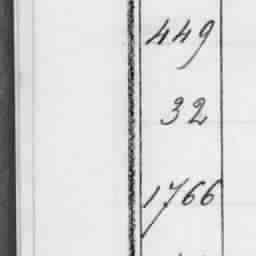 449
32
1766